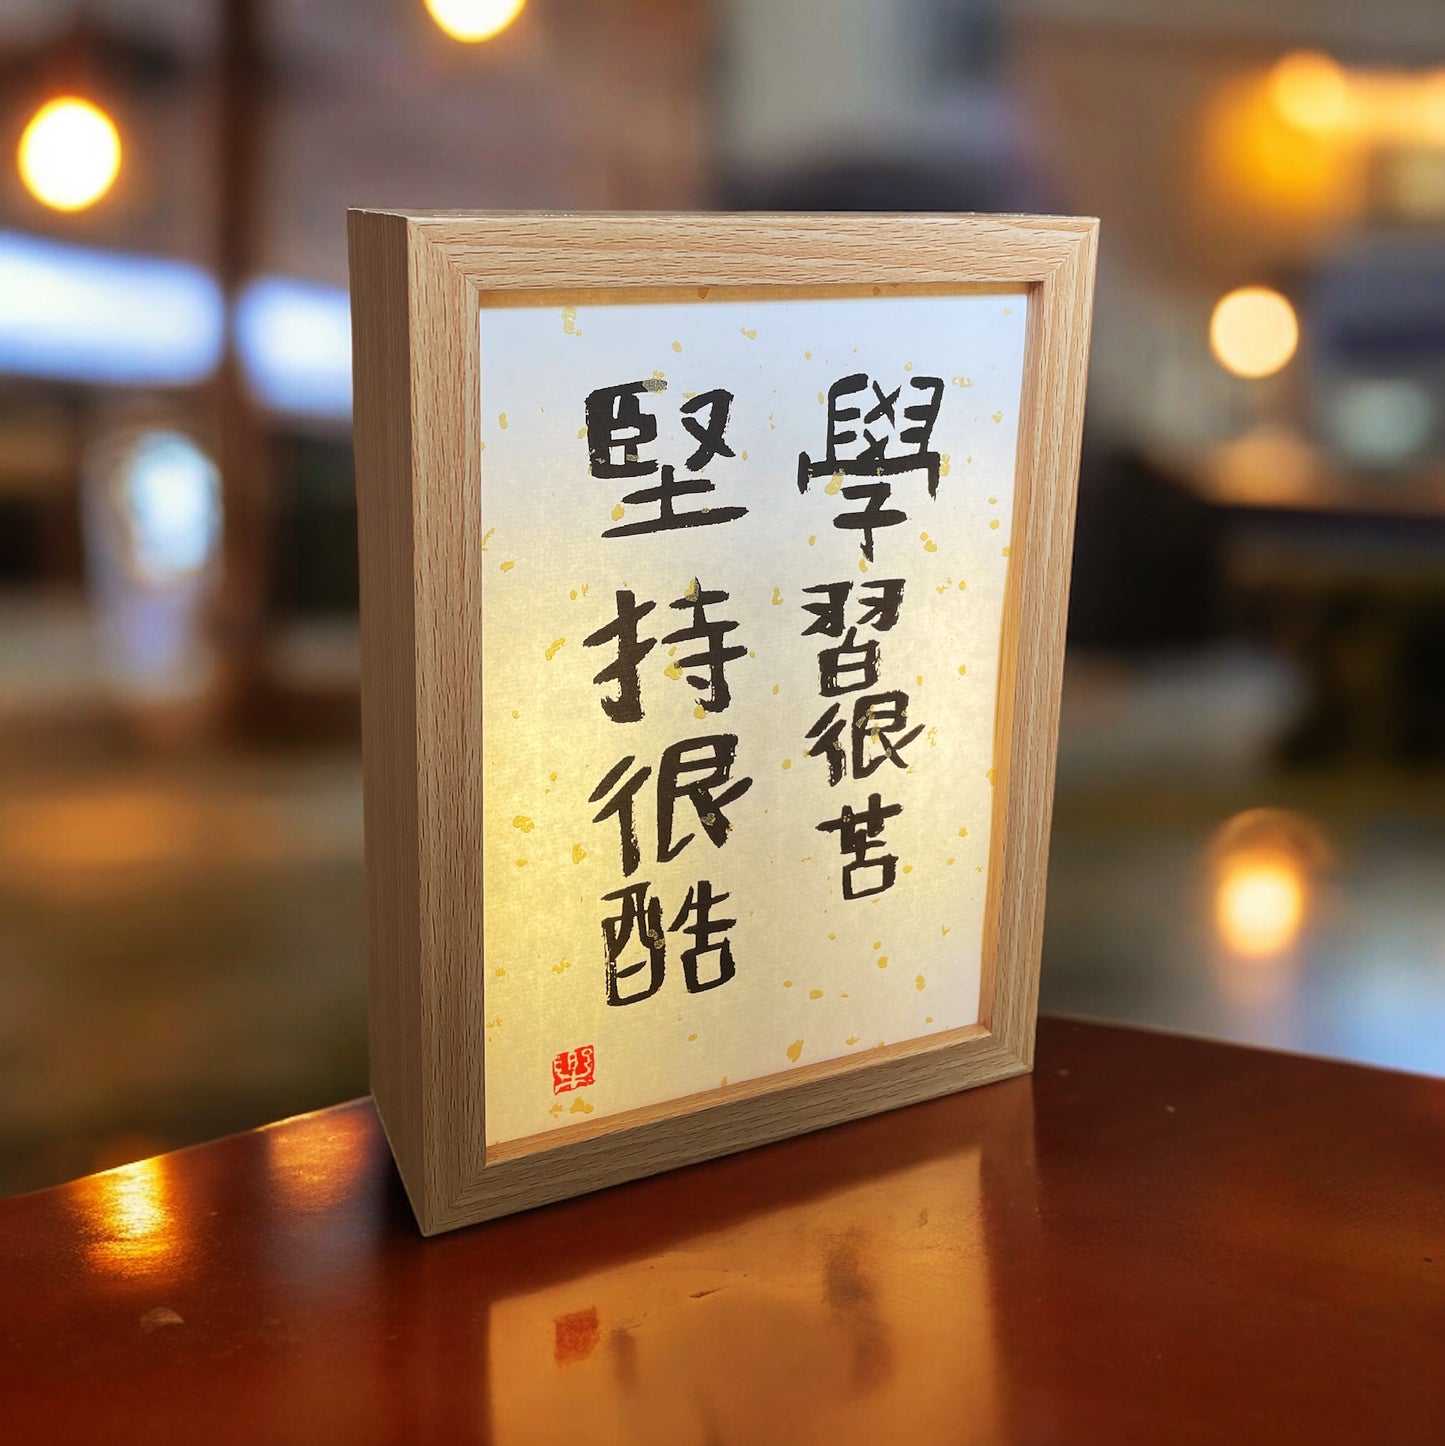 學習很苦
堅持很酷
樂